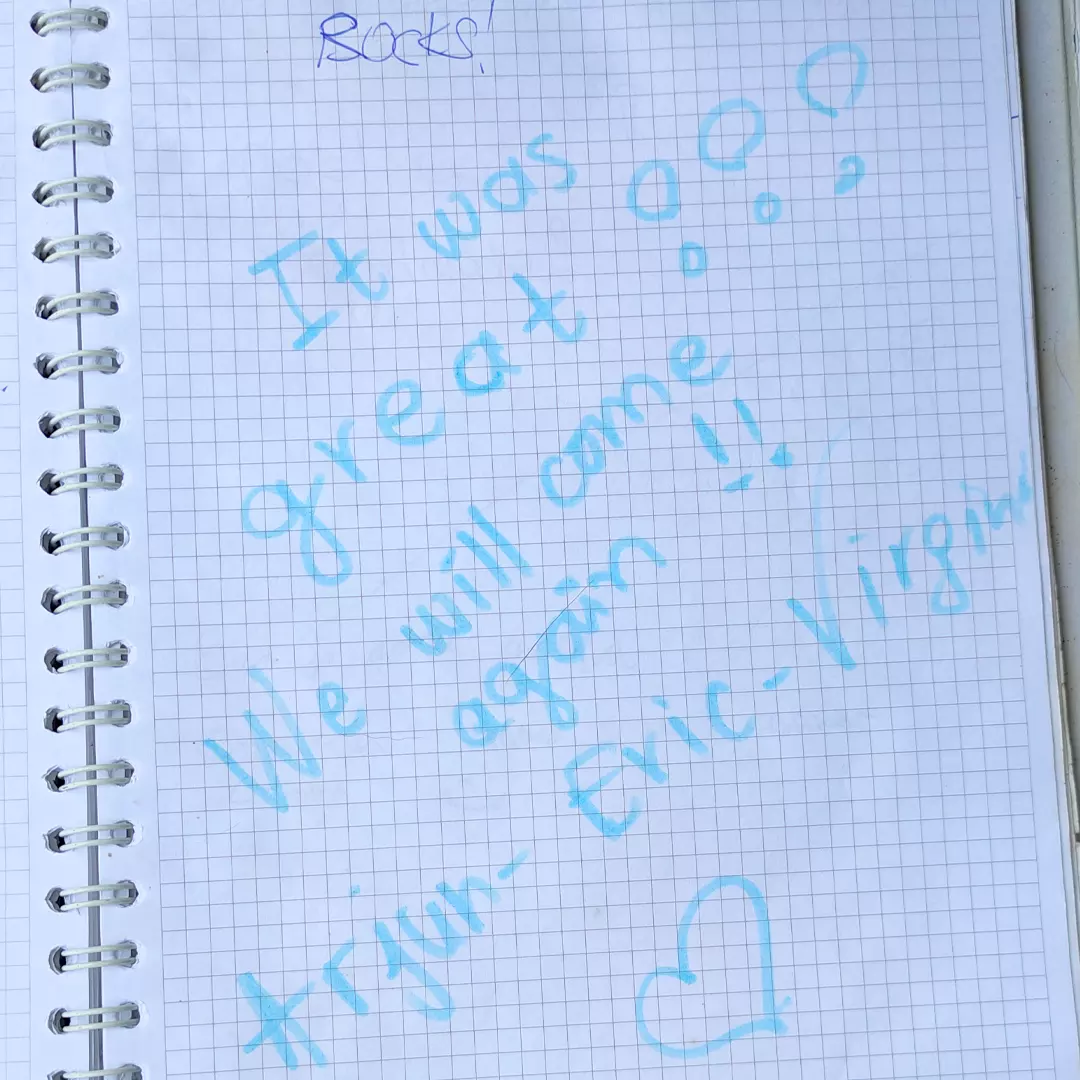 Rocks!
It was
great
We will come
again !!
Arjun - Eric - Virgin